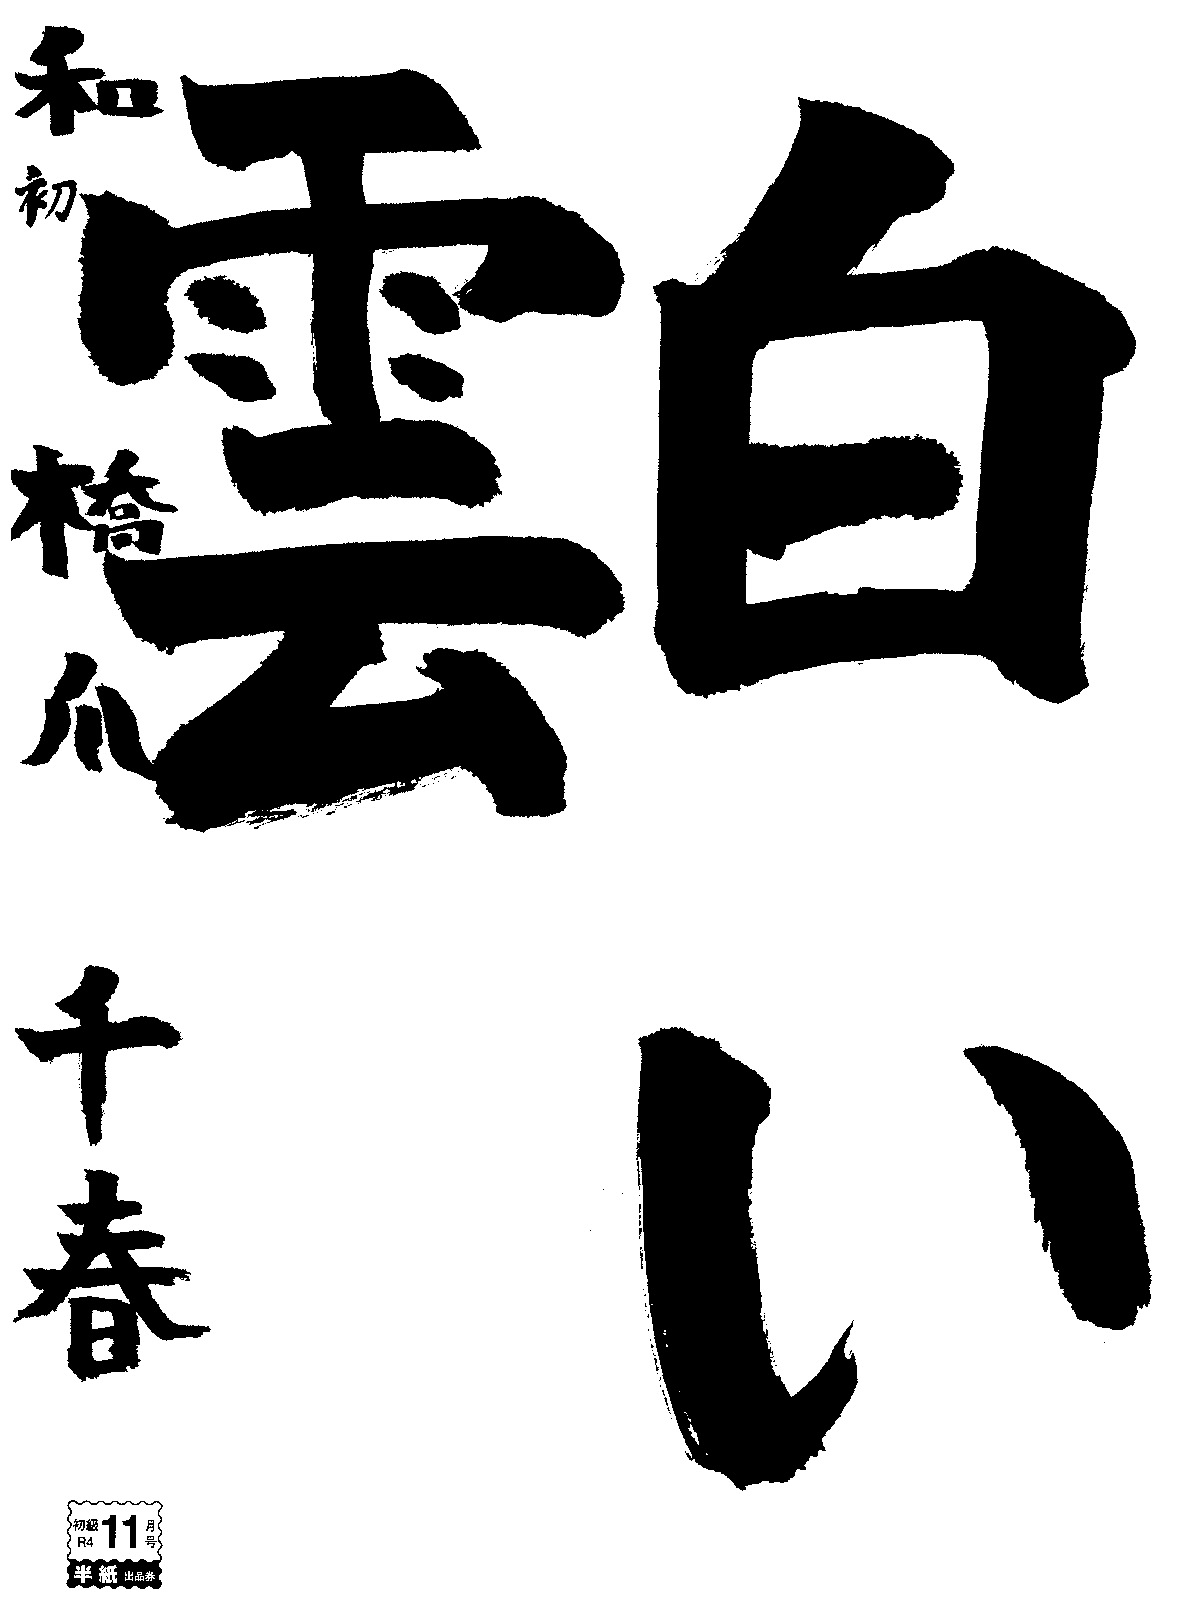 白い
雲
和 初 橋爪 千春
初級 R4 11月号
半紙 出品券